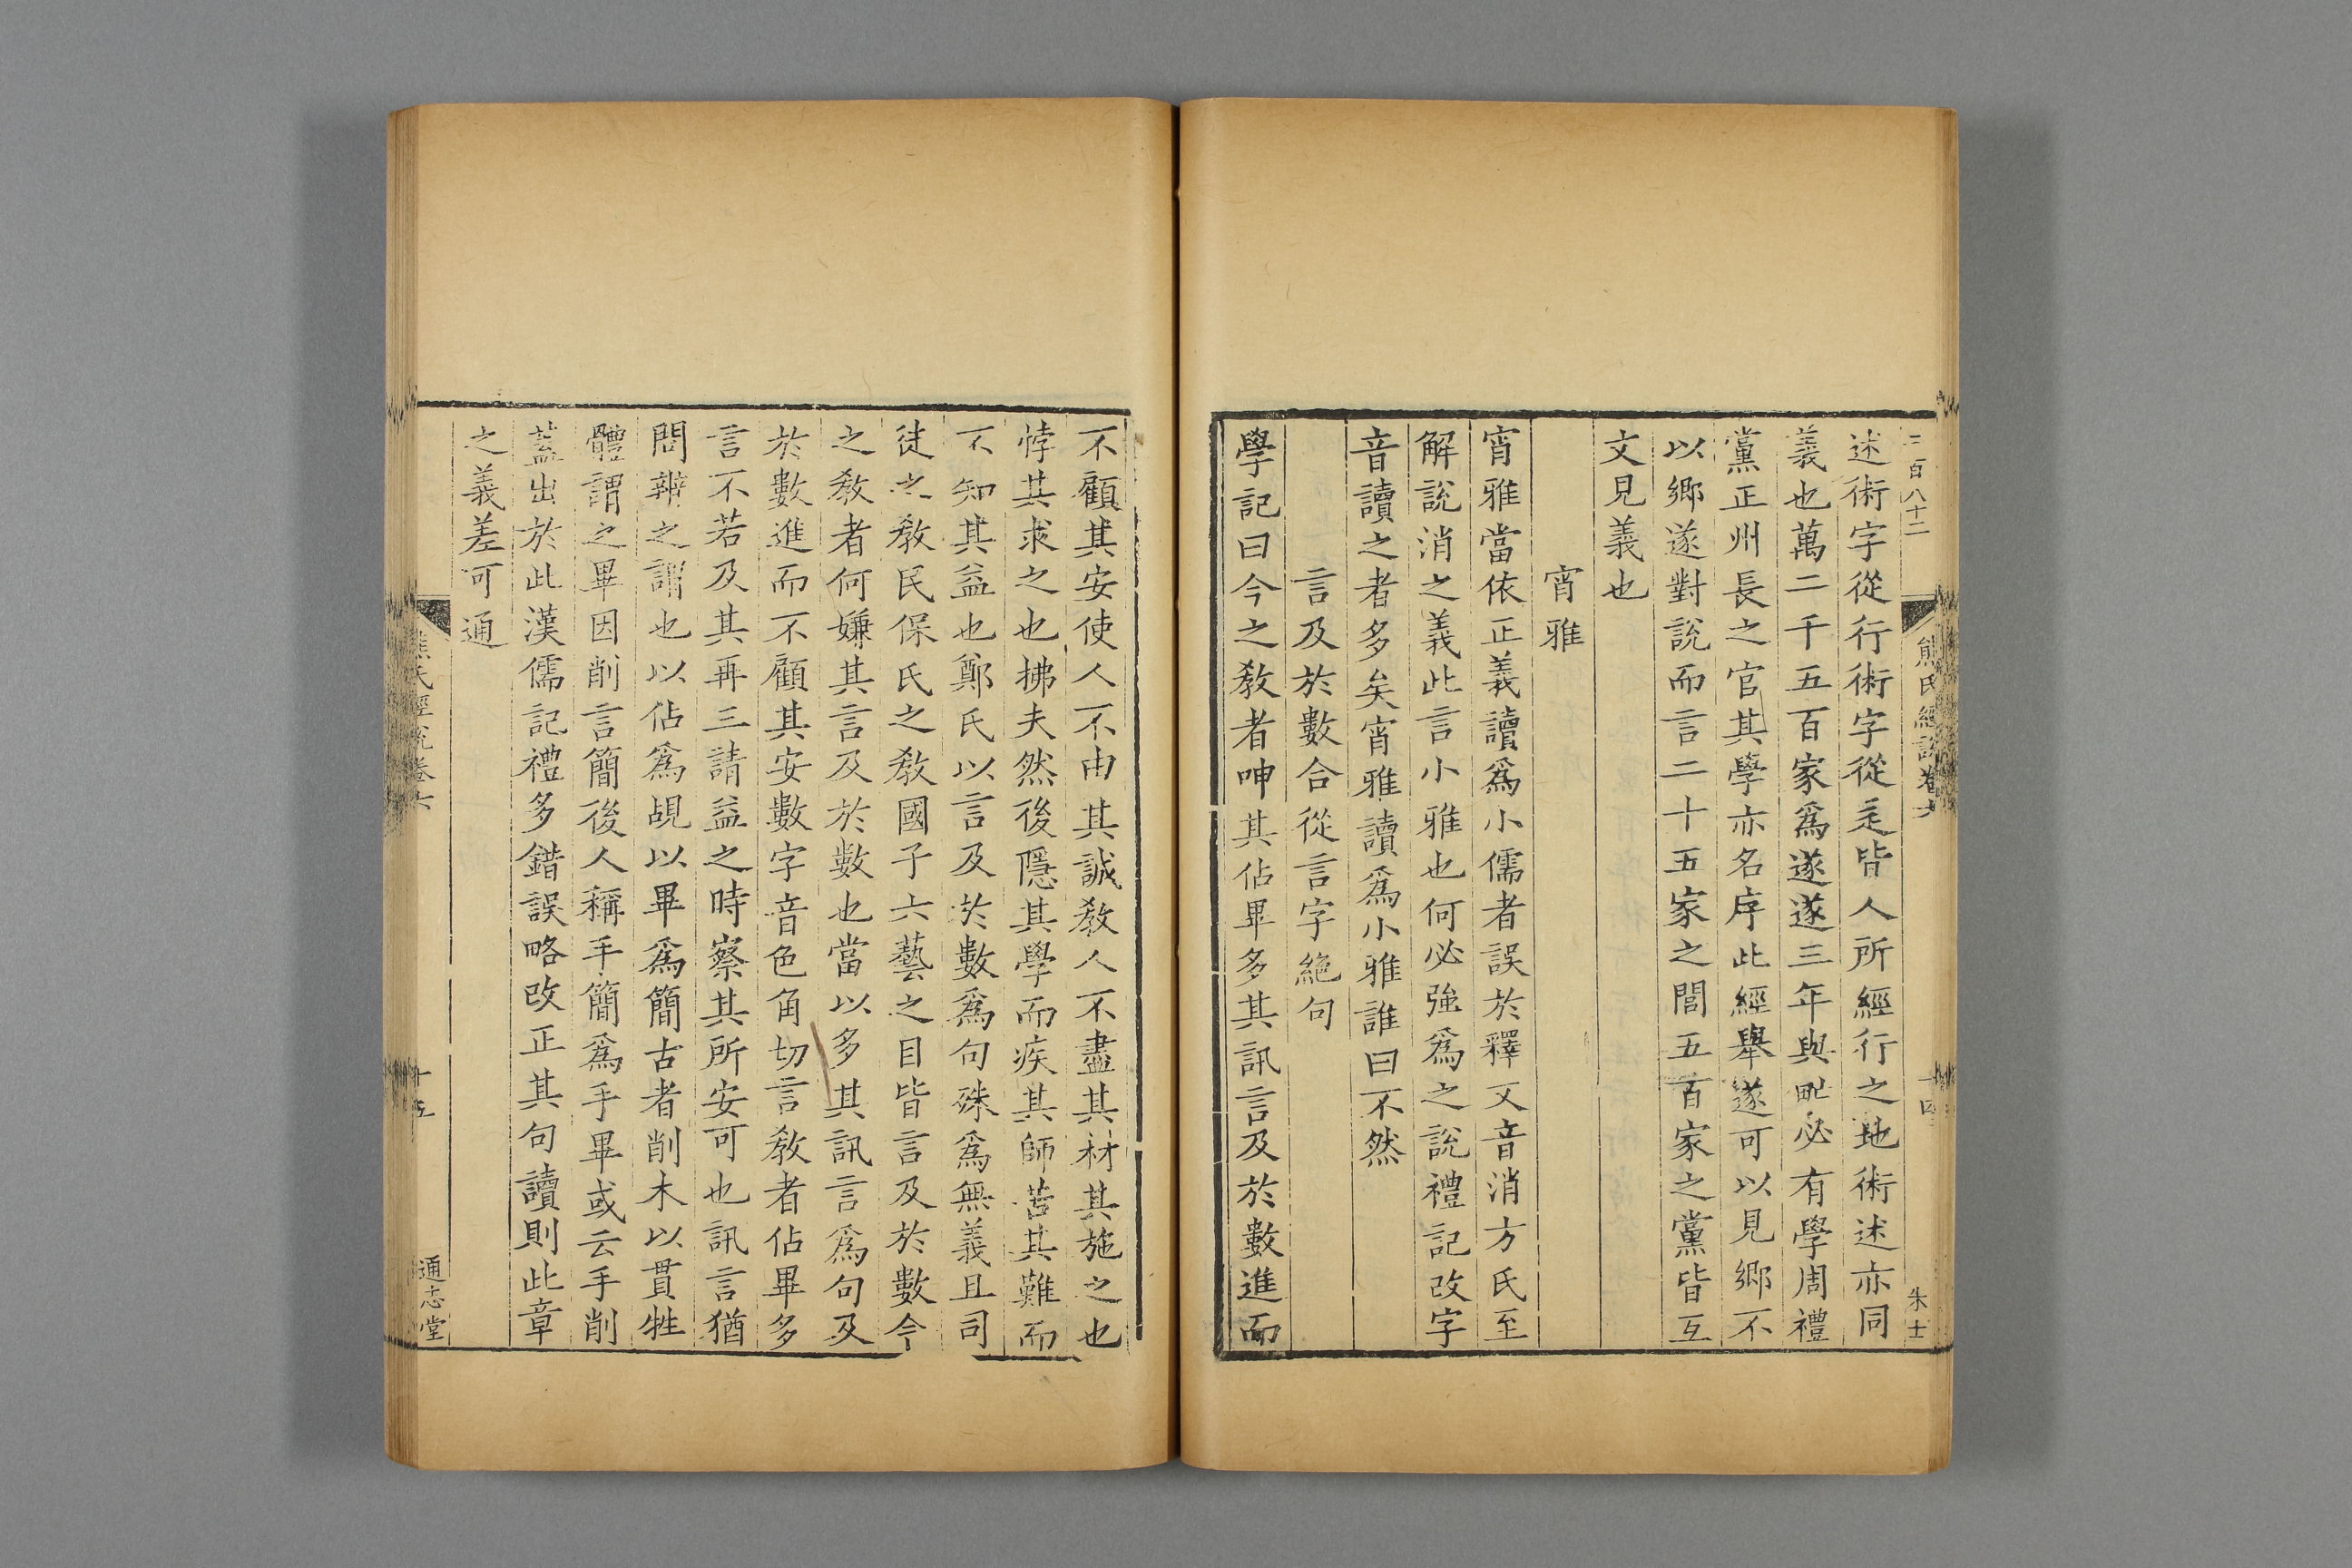 三百八十二
熊氏經說卷六
十四
朱士
述術字從行術字從辵皆人所經行之地術述亦同
義也萬二千五百家爲遂遂三年與甿必有學周禮
黨正州長之官其學亦名序此經舉遂可以見鄉不
以鄉遂對說而言二十五家之閭五百家之黨皆互
文見義也
宵雅
宵雅當依正義讀爲小儒者誤於釋文音消方氏至
解說消之義此言小雅也何必強爲之說禮記改字
音讀之者多矣宵雅讀爲小雅誰曰不然
言及於數合從言字絶句
學記曰今之敎者呻其佔畢多其訊言及於數進而
不顧其安使人不由其誠敎人不盡其材其施之也
悖其求之也拂夫然後隱其學而疾其師苦其難而
不知其益也鄭氏以言及於數爲句殊爲無義且司
徒之敎民保氏之敎國子六藝之目皆言及於數今
之敎者何嫌其言及於數也當以多其訊言爲句及
於數進而不顧其安數字音色角切言敎者佔畢多
言不若及其再三請益之時察其所安可也訊言猶
問辨之謂也以佔爲覘以畢爲簡古者削木以貫牲
體謂之畢因削言簡後人稱手簡爲手畢或云手削
蓋出於此漢儒記禮多錯誤略改正其句讀則此章
之義差可通
熊氏經說卷六
十五
通志堂